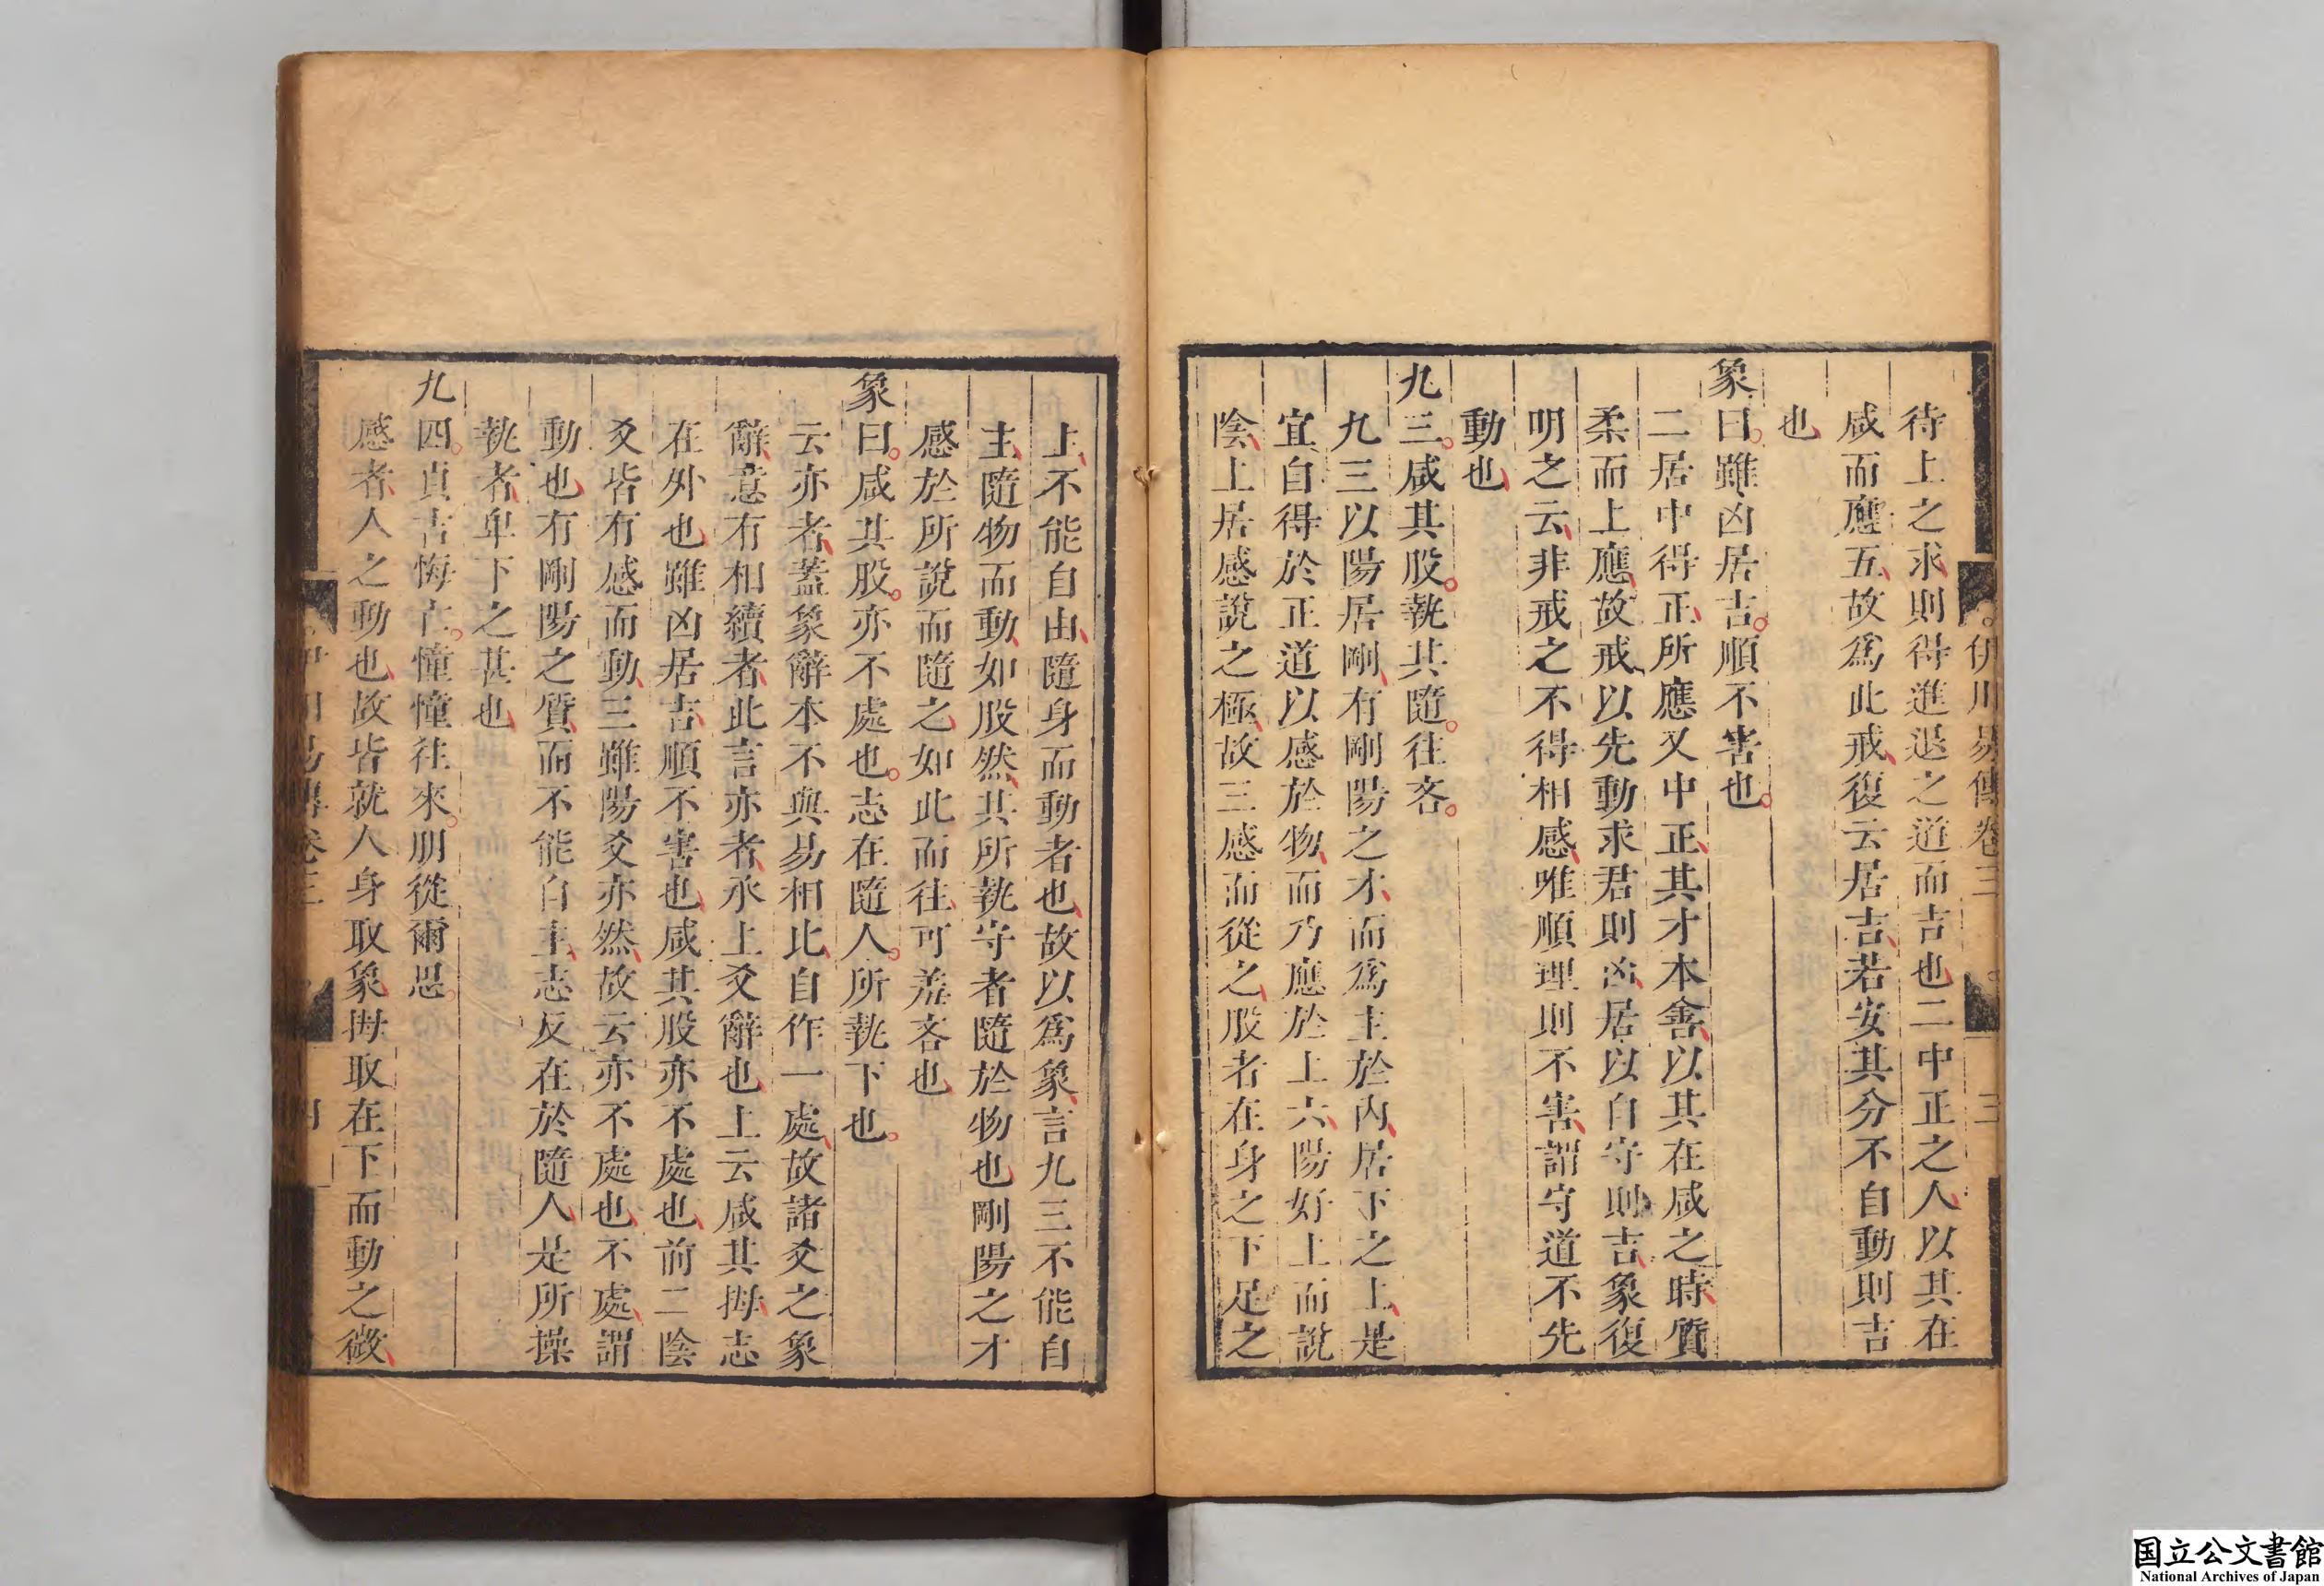 伊川易傳卷三
三
待上之求則得進退之道而吉也二中正之人以其在
咸而應五故爲此戒復云居吉若安其分不自動則吉
也
象曰雖凶居吉順不害也
二居中得正所應又中正其才本善以其在咸之時質
柔而上應故戒以先動求君則凶居以自守則吉象復
明之云非戒之不得相感唯順理則不害謂守道不先
動也
九三咸其股執其隨往吝
九三以陽居剛有剛陽之才而爲主於內居下之上是
宜自得於正道以感於物而乃應於上六陽好上而說
陰上居感說之極故三感而從之股者在身之下足之
上不能自由隨身而動者也故以爲象言九三不能自
主隨物而動如股然其所執守者隨於物也剛陽之才
感於所說而隨之如此而往可羞吝也
象曰咸其股亦不處也志在隨人所執下也
云亦者蓋象辭本不與易相比自作一處故諸爻之象
辭意有相續者此言亦者承上爻辭也上云咸其拇志
在外也雖凶居吉順不害也咸其股亦不處也前二陰
爻皆有感而動三雖陽爻亦然故云亦不處也不處謂
動也有剛陽之質而不能自主志反在於隨人是所操
執者卑下之甚也
九四貞吉悔亡憧憧往來朋從爾思
感者人之動也故皆就人身取象拇取在下而動之微
易傳卷三
国立公文書館
National Archives of Japan